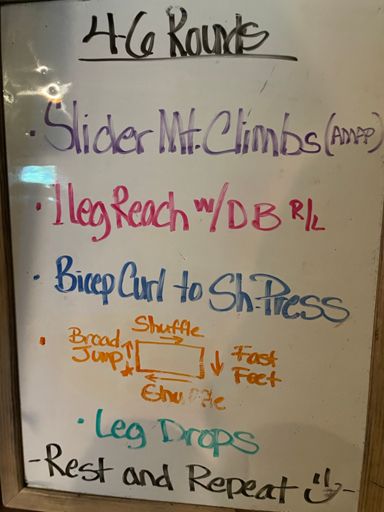 4-6 Rounds
· Slider Mt. Climbs (AMAP)
· 1 leg Reach w/ DB R/L
· Bicep Curl to Sh. Press
· Broad Jump Shuffle Fast Feet Shuffle
· Leg Drops
- Rest and Repeat -